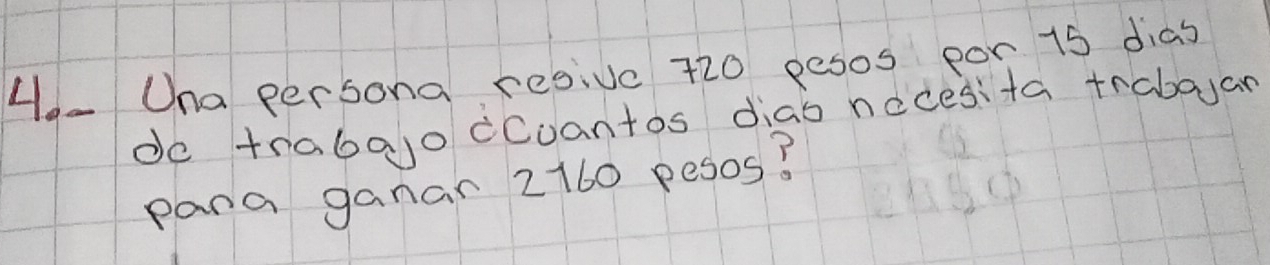 4.- Una persona resive 720 pesos por 15 dias
de trabajo ¿Cuantos dias necesita trabajar
para ganar 2160 pesos?